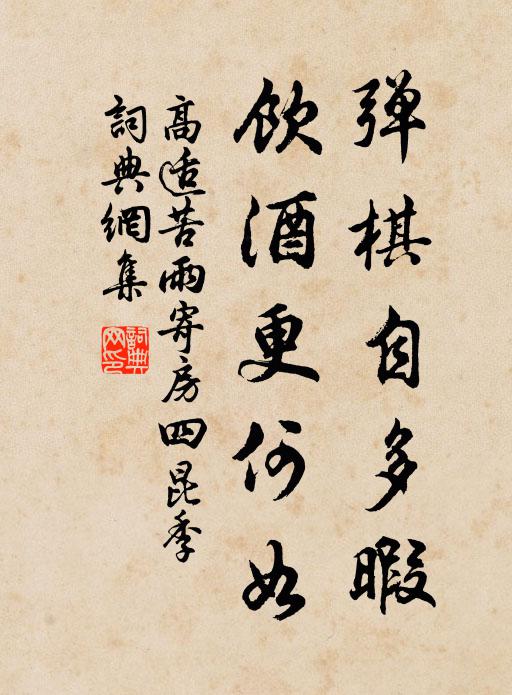 弹棋自多暇
饮酒更何如
高适苦雨寄房四昆季
词典網集
詞典网印